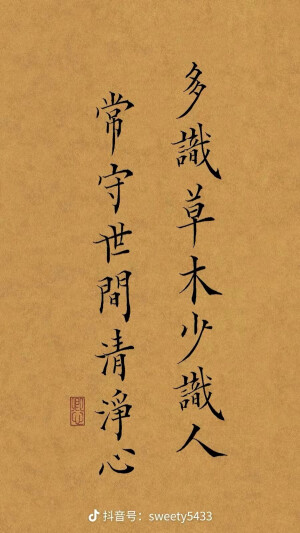 多識草木少識人
常守世間清淨心
抖音号：sweety5433